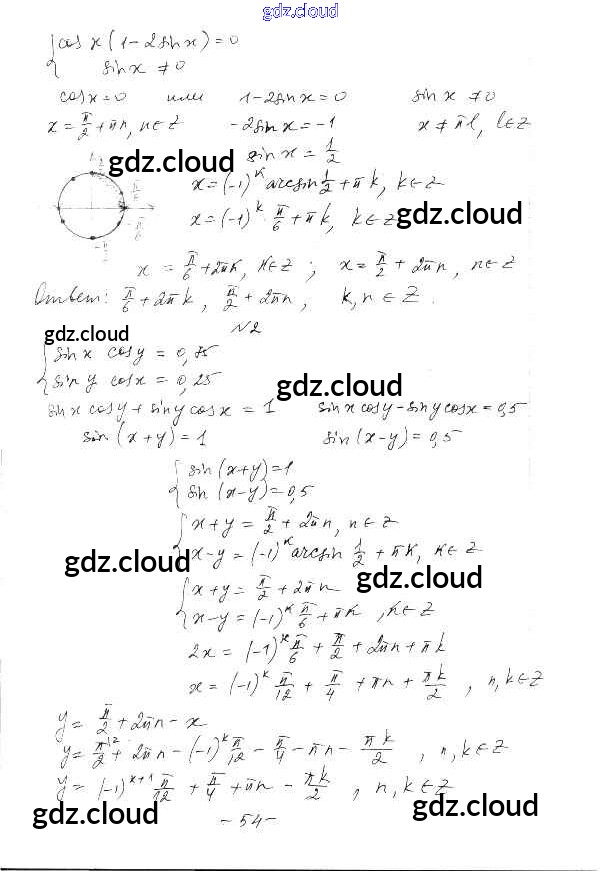 gdz.cloud
{cos x (1 - 2sin x) = 0
sin x ≠ 0
cos x = 0 или 1 - 2sin x = 0 sin x ≠ 0
x = π/2 + πn, n ∈ Z -2sin x = -1 x ≠ πl, l ∈ Z
sin x = 1/2
gdz.cloud
x = (-1)^k arcsin 1/2 + πk, k ∈ Z
x = (-1)^k π/6 + πk, k ∈ Z
gdz.cloud
π/6
-π/6
x = π/6 + 2πk, k ∈ Z; x = π/2 + 2πn, n ∈ Z
Ответ: π/6 + 2πk, π/2 + 2πn, k, n ∈ Z.
gdz.cloud
N2
{sin x cos y = 0,75
sin y cos x = 0,25
gdz.cloud
sin x cos y + sin y cos x = 1 sin x cos y - sin y cos x = 0,5
sin (x + y) = 1 sin (x - y) = 0,5
{sin (x + y) = 1
sin (x - y) = 0,5
{x + y = π/2 + 2πn, n ∈ Z
x - y = (-1)^k arcsin 1/2 + πk, k ∈ Z
gdz.cloud gdz.cloud
{x + y = π/2 + 2πn
x - y = (-1)^k π/6 + πk, k ∈ Z
2x = (-1)^k π/6 + π/2 + 2πn + πk
x = (-1)^k π/12 + π/4 + πn + πk/2, n, k ∈ Z
y = π/2 + 2πn - x
y = π/2 + 2πn - (-1)^k π/12 - π/4 - πn - πk/2, n, k ∈ Z
y = (-1)^{k+1} π/12 + π/4 + πn - πk/2, n, k ∈ Z
gdz.cloud gdz.cloud
- 54 -